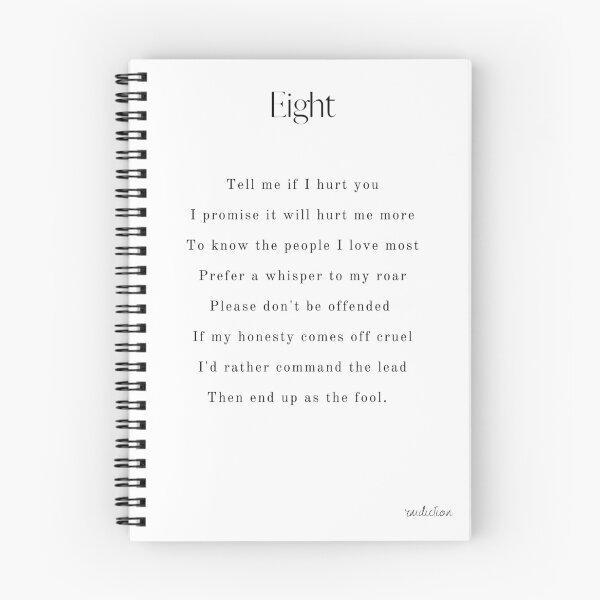 Eight
Tell me if I hurt you
I promise it will hurt me more
To know the people I love most
Prefer a whisper to my roar
Please don't be offended
If my honesty comes off cruel
I'd rather command the lead
Then end up as the fool.